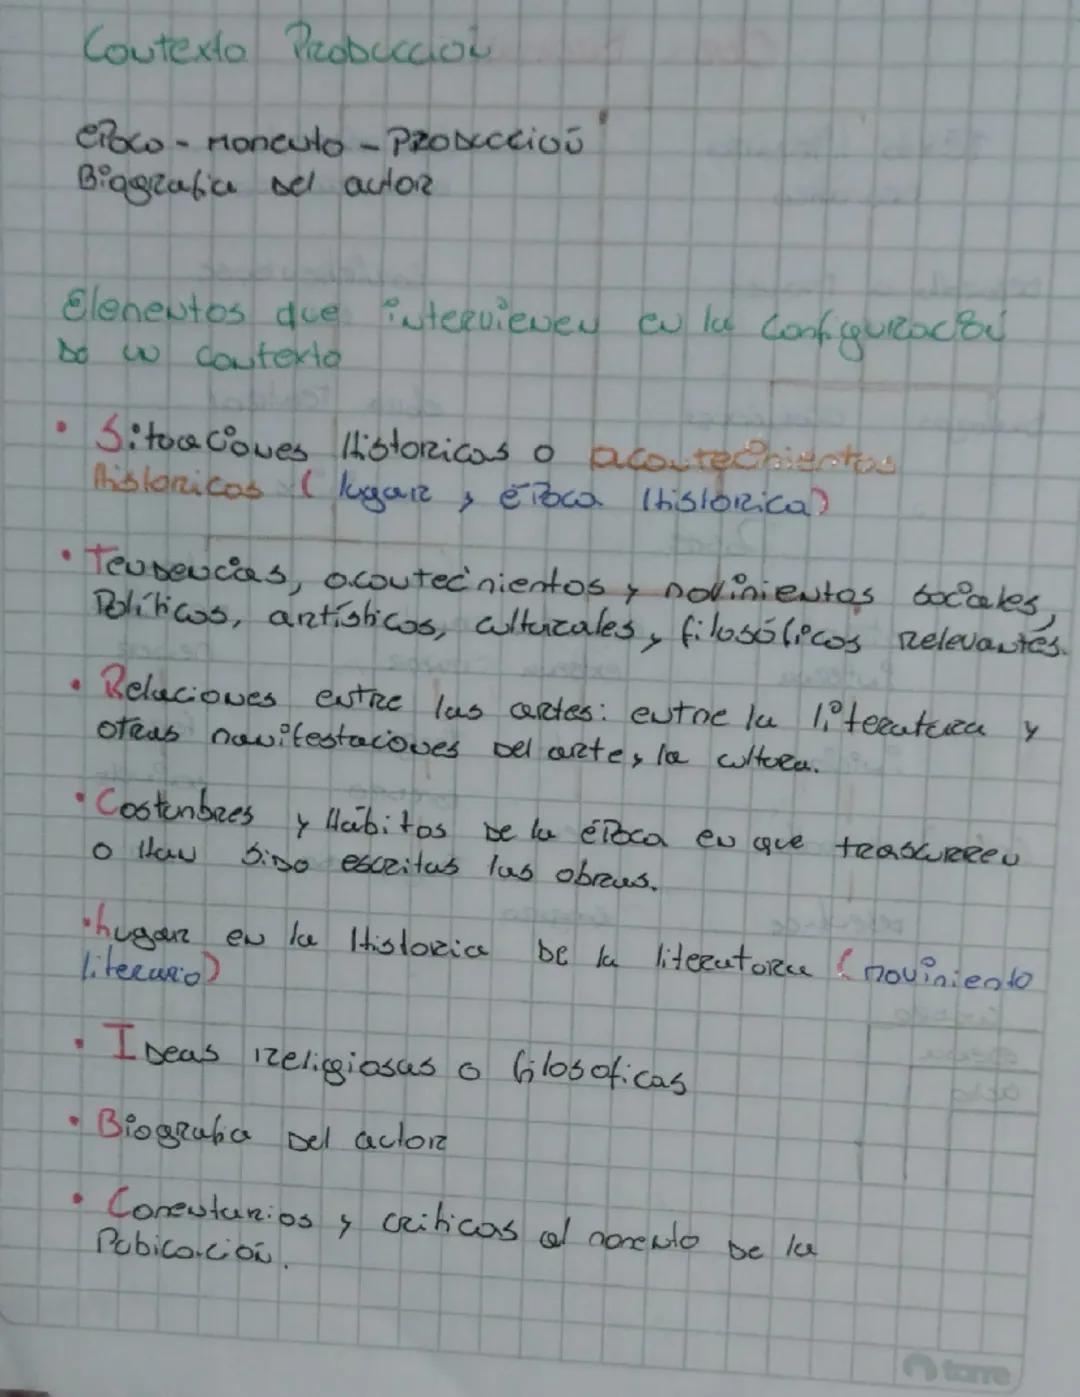 Contexto Producción
época - Momento - Producción
Biografia del autor
Elementos que intervienen en la configuración
de un contexto
• Situaciones Historicas o acontecimientos
historicos (lugar y época historica)
• Tendencias, acontecimientos y movimientos sociales,
Políticos, artísticos, culturales y filosóficos relevantes.
• Relaciones entre las artes: entre la literatura y
otras manifestaciones del arte y la cultura.
• Costumbres y Hábitos de la época en que trascurren
o Han sido escritas las obras.
• Lugar en la Historia de la literatura (movimiento
literario)
• Ideas religiosas o filosoficas
• Biografia del autor
• Comentarios y criticas al momento de la
Pubicación.
torre